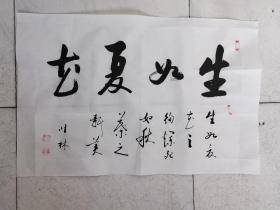 生如夏花
生如夏
花之
绚烂死
如秋
叶之
静美